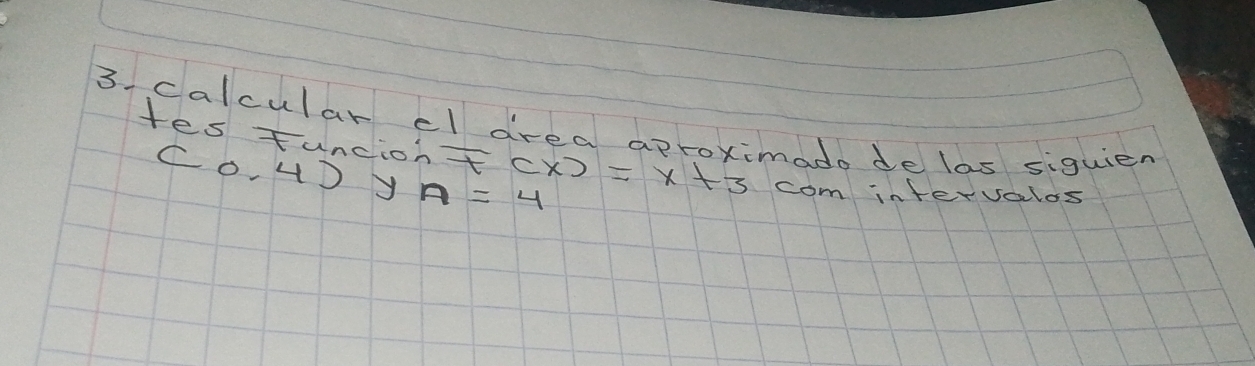 3- calcular el área aproximado de las siguien
tes Función F (x) = x+3 com intervalos
(0.4) y n = 4